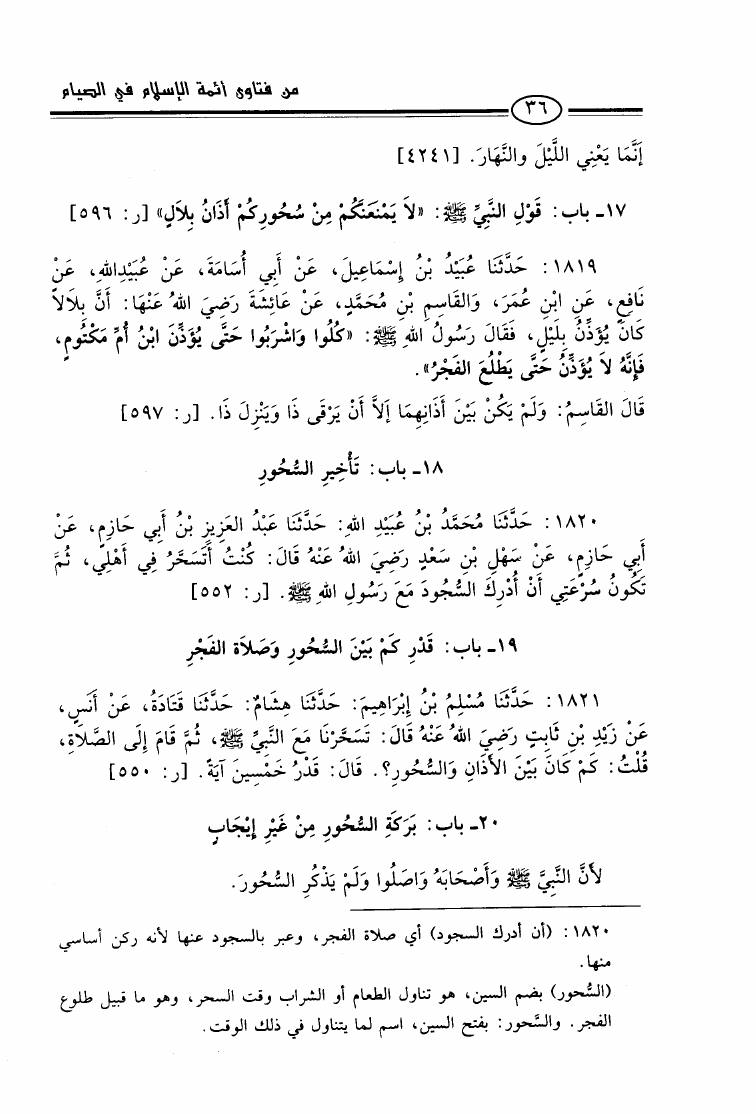 من فتاوى أئمة الإسلام في الصيام
٣٦
إنَّمَا يَعْنِي اللَّيْلَ والنَّهَارَ. [٤٢٤١]
١٧ـ باب: قَوْلِ النَّبِيِّ ﷺ: «لاَ يَمْنَعَنَّكُمْ مِنْ سُحُورِكُمْ أَذَانُ بِلَالٍ» [ر: ٥٩٦]
١٨١٩: حَدَّثَنَا عُبَيْدُ بْنُ إِسْمَاعِيلَ، عَنْ أَبِي أُسَامَةَ، عَنْ عُبَيْدِاللهِ، عَنْ
نَافِعٍ، عَنِ ابْنِ عُمَرَ، وَالقَاسِمِ بْنِ مُحَمَّدٍ، عَنْ عَائِشَةَ رَضِيَ اللهُ عَنْهَا: أَنَّ بِلَالاً
كَانَ يُؤَذِّنُ بِلَيْلٍ، فَقَالَ رَسُولُ اللهِ ﷺ: «كُلُوا وَاشْرَبُوا حَتَّى يُؤَذِّنَ ابْنُ أُمِّ مَكْتُومٍ،
فَإِنَّهُ لاَ يُؤَذِّنُ حَتَّى يَطْلُعَ الفَجْرُ».
قَالَ القَاسِمُ: وَلَمْ يَكُنْ بَيْنَ أَذَانِهِمَا إلاَّ أَنْ يَرْقَى ذَا وَيَنْزِلَ ذَا. [ر: ٥٩٧]
١٨ـ باب: تَأْخِيرِ السُّحُورِ
١٨٢٠: حَدَّثَنَا مُحَمَّدُ بْنُ عُبَيْدِ اللهِ: حَدَّثَنَا عَبْدُ العَزِيزِ بْنُ أَبِي حَازِمٍ، عَنْ
أَبِي حَازِمٍ، عَنْ سَهْلِ بْنِ سَعْدٍ رَضِيَ اللهُ عَنْهُ قَالَ: كُنْتُ أَتَسَحَّرُ فِي أَهْلِي، ثُمَّ
تَكُونُ سُرْعَتِي أَنْ أُدْرِكَ السُّجُودَ مَعَ رَسُولِ اللهِ ﷺ. [ر: ٥٥٢]
١٩ـ باب: قَدْرِ كَمْ بَيْنَ السُّحُورِ وَصَلاَةِ الفَجْرِ
١٨٢١: حَدَّثَنَا مُسْلِمُ بْنُ إِبْرَاهِيمَ: حَدَّثَنَا هِشَامٌ: حَدَّثَنَا قَتَادَةُ، عَنْ أَنَسٍ،
عَنْ زَيْدِ بْنِ ثَابِتٍ رَضِيَ اللهُ عَنْهُ قَالَ: تَسَحَّرْنَا مَعَ النَّبِيِّ ﷺ، ثُمَّ قَامَ إِلَى الصَّلَاةِ،
قُلْتُ: كَمْ كَانَ بَيْنَ الأَذَانِ وَالسُّحُورِ؟. قَالَ: قَدْرُ خَمْسِينَ آيَةً. [ر: ٥٥٠]
٢٠ـ باب: بَرَكَةِ السُّحُورِ مِنْ غَيْرِ إِيْجَابٍ
لأَنَّ النَّبِيَّ ﷺ وَأَصْحَابَهُ وَاصَلُوا وَلَمْ يَذْكُرِ السُّحُورَ.
١٨٢٠: (أن أدرك السجود) أي صلاة الفجر، وعبر بالسجود عنها لأنه ركن أساسي
منها.
(السُّحور) بضم السين، هو تناول الطعام أو الشراب وقت السحر، وهو ما قبيل طلوع
الفجر. والسَّحور: بفتح السين، اسم لما يتناول في ذلك الوقت.